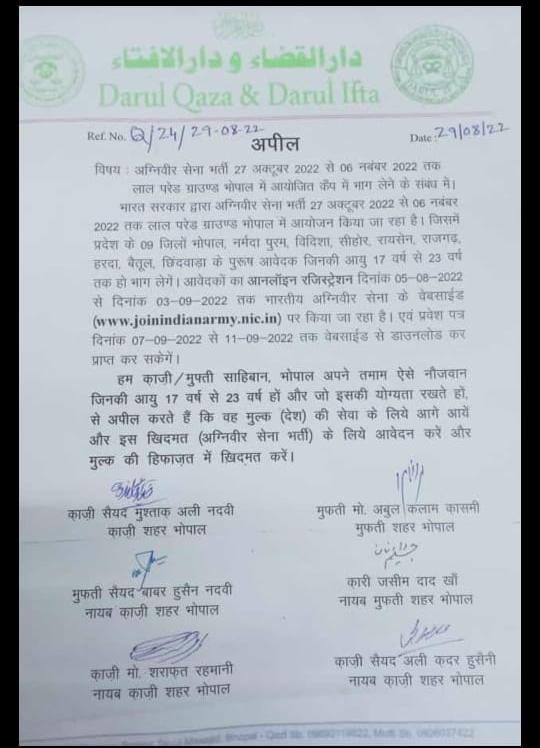 دارالقضاء و دارالافتاء
Darul Qaza & Darul Ifta
Ref. No. Q/24/29-08-22
Date : 29/08/22
अपील
विषय : अग्निवीर सेना भर्ती 27 अक्टूबर 2022 से 06 नबंबर 2022 तक
लाल परेड ग्राउण्ड भोपाल में आयोजित कैंप में भाग लेने के संबध में।
भारत सरकार द्वारा अग्निवीर सेना भर्ती 27 अक्टूबर 2022 से 06 नबंबर
2022 तक लाल परेड ग्राउण्ड भोपाल में आयोजन किया जा रहा है। जिसमें
प्रदेश के 09 जिलों भोपाल, नर्मदा पुरम, विदिशा, सीहोर, रायसेन, राजगढ़,
हरदा, बैतूल, छिंदवाड़ा के पुरूष आवेदक जिनकी आयु 17 वर्ष से 23 वर्ष
तक हो भाग लेगें। आवेदकों का आनलॉइन रजिस्ट्रेशन दिनांक 05-08-2022
से दिनांक 03-09-2022 तक भारतीय अग्निवीर सेना के वेबसाईड
(www.joinindianarmy.nic.in) पर किया जा रहा है। एवं प्रवेश पत्र
दिनांक 07-09-2022 से 11-09-2022 तक वेबसाईड से डाउनलोड कर
प्राप्त कर सकेगें।
हम का़ज़ी/मुफ्ती साहिबान, भोपाल अपने तमाम ऐसे नौजवान
जिनकी आयु 17 वर्ष से 23 वर्ष हों और जो इसकी योग्यता रखते हों,
से अपील करते हैं कि वह मुल्क (देश) की सेवा के लिये आगे आयें
और इस खिदमत (अग्निवीर सेना भर्ती) के लिये आवेदन करें और
मुल्क की हिफाज़त में ख़िदमत करें।
का़ज़ी सैयद मुश्ताक अली नदवी
का़ज़ी शहर भोपाल
मुफती मो. अबुल कलाम कासमी
मुफती शहर भोपाल
मुफती सैयद बाबर हुसैन नदवी
नायब का़ज़ी शहर भोपाल
कारी जसीम दाद खाँ
नायब मुफती शहर भोपाल
का़ज़ी मो. शराफ़त रहमानी
नायब का़ज़ी शहर भोपाल
का़ज़ी सैयद अली क़दर हुसैनी
नायब का़ज़ी शहर भोपाल